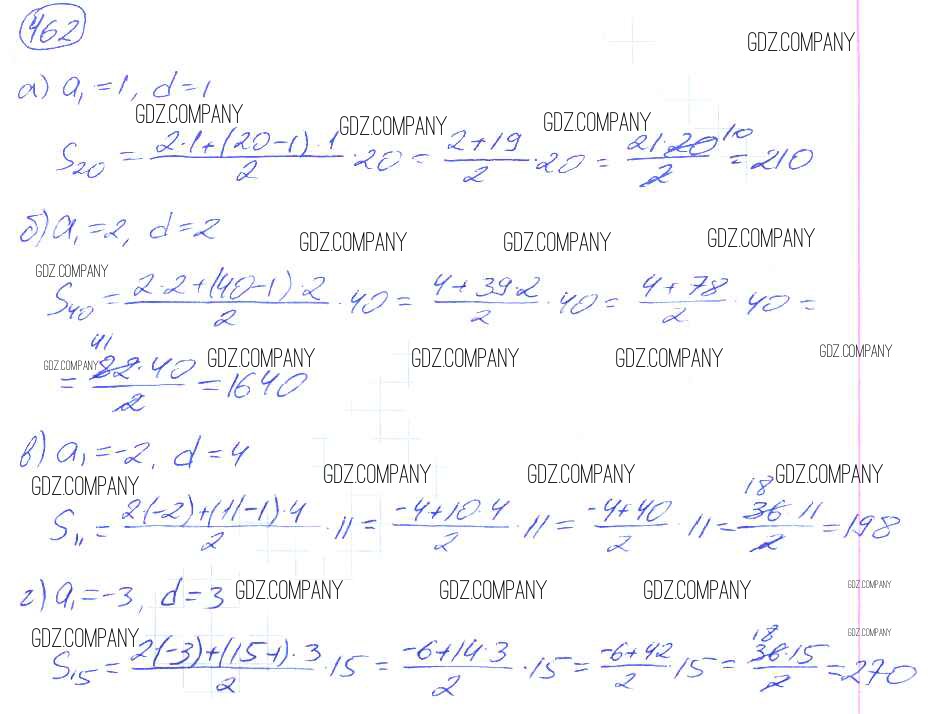 462
GDZ.COMPANY
а) a₁ = 1, d = 1
GDZ.COMPANY GDZ.COMPANY GDZ.COMPANY
S₂₀ = (2·1+(20-1)·1)/2 · 20 = (2+19)/2 · 20 = (21·20)/2 10 = 210
б) a₁ = 2, d = 2
GDZ.COMPANY GDZ.COMPANY GDZ.COMPANY
GDZ.COMPANY
S₄₀ = (2·2+(40-1)·2)/2 · 40 = (4+39·2)/2 · 40 = (4+78)/2 · 40 =
GDZ.COMPANY GDZ.COMPANY GDZ.COMPANY GDZ.COMPANY GDZ.COMPANY
= 41 (82·40)/2 = 1640
в) a₁ = -2, d = 4
GDZ.COMPANY GDZ.COMPANY GDZ.COMPANY GDZ.COMPANY
S₁₁ = (2(-2)+(11-1)·4)/2 · 11 = (-4+10·4)/2 · 11 = (-4+40)/2 · 11 = 18 (36 11)/2 = 198
г) a₁ = -3, d = 3
GDZ.COMPANY GDZ.COMPANY GDZ.COMPANY GDZ.COMPANY
GDZ.COMPANY GDZ.COMPANY
S₁₅ = (2(-3)+(15-1)·3)/2 · 15 = (-6+14·3)/2 · 15 = (-6+42)/2 · 15 = 18 (36·15)/2 = 270